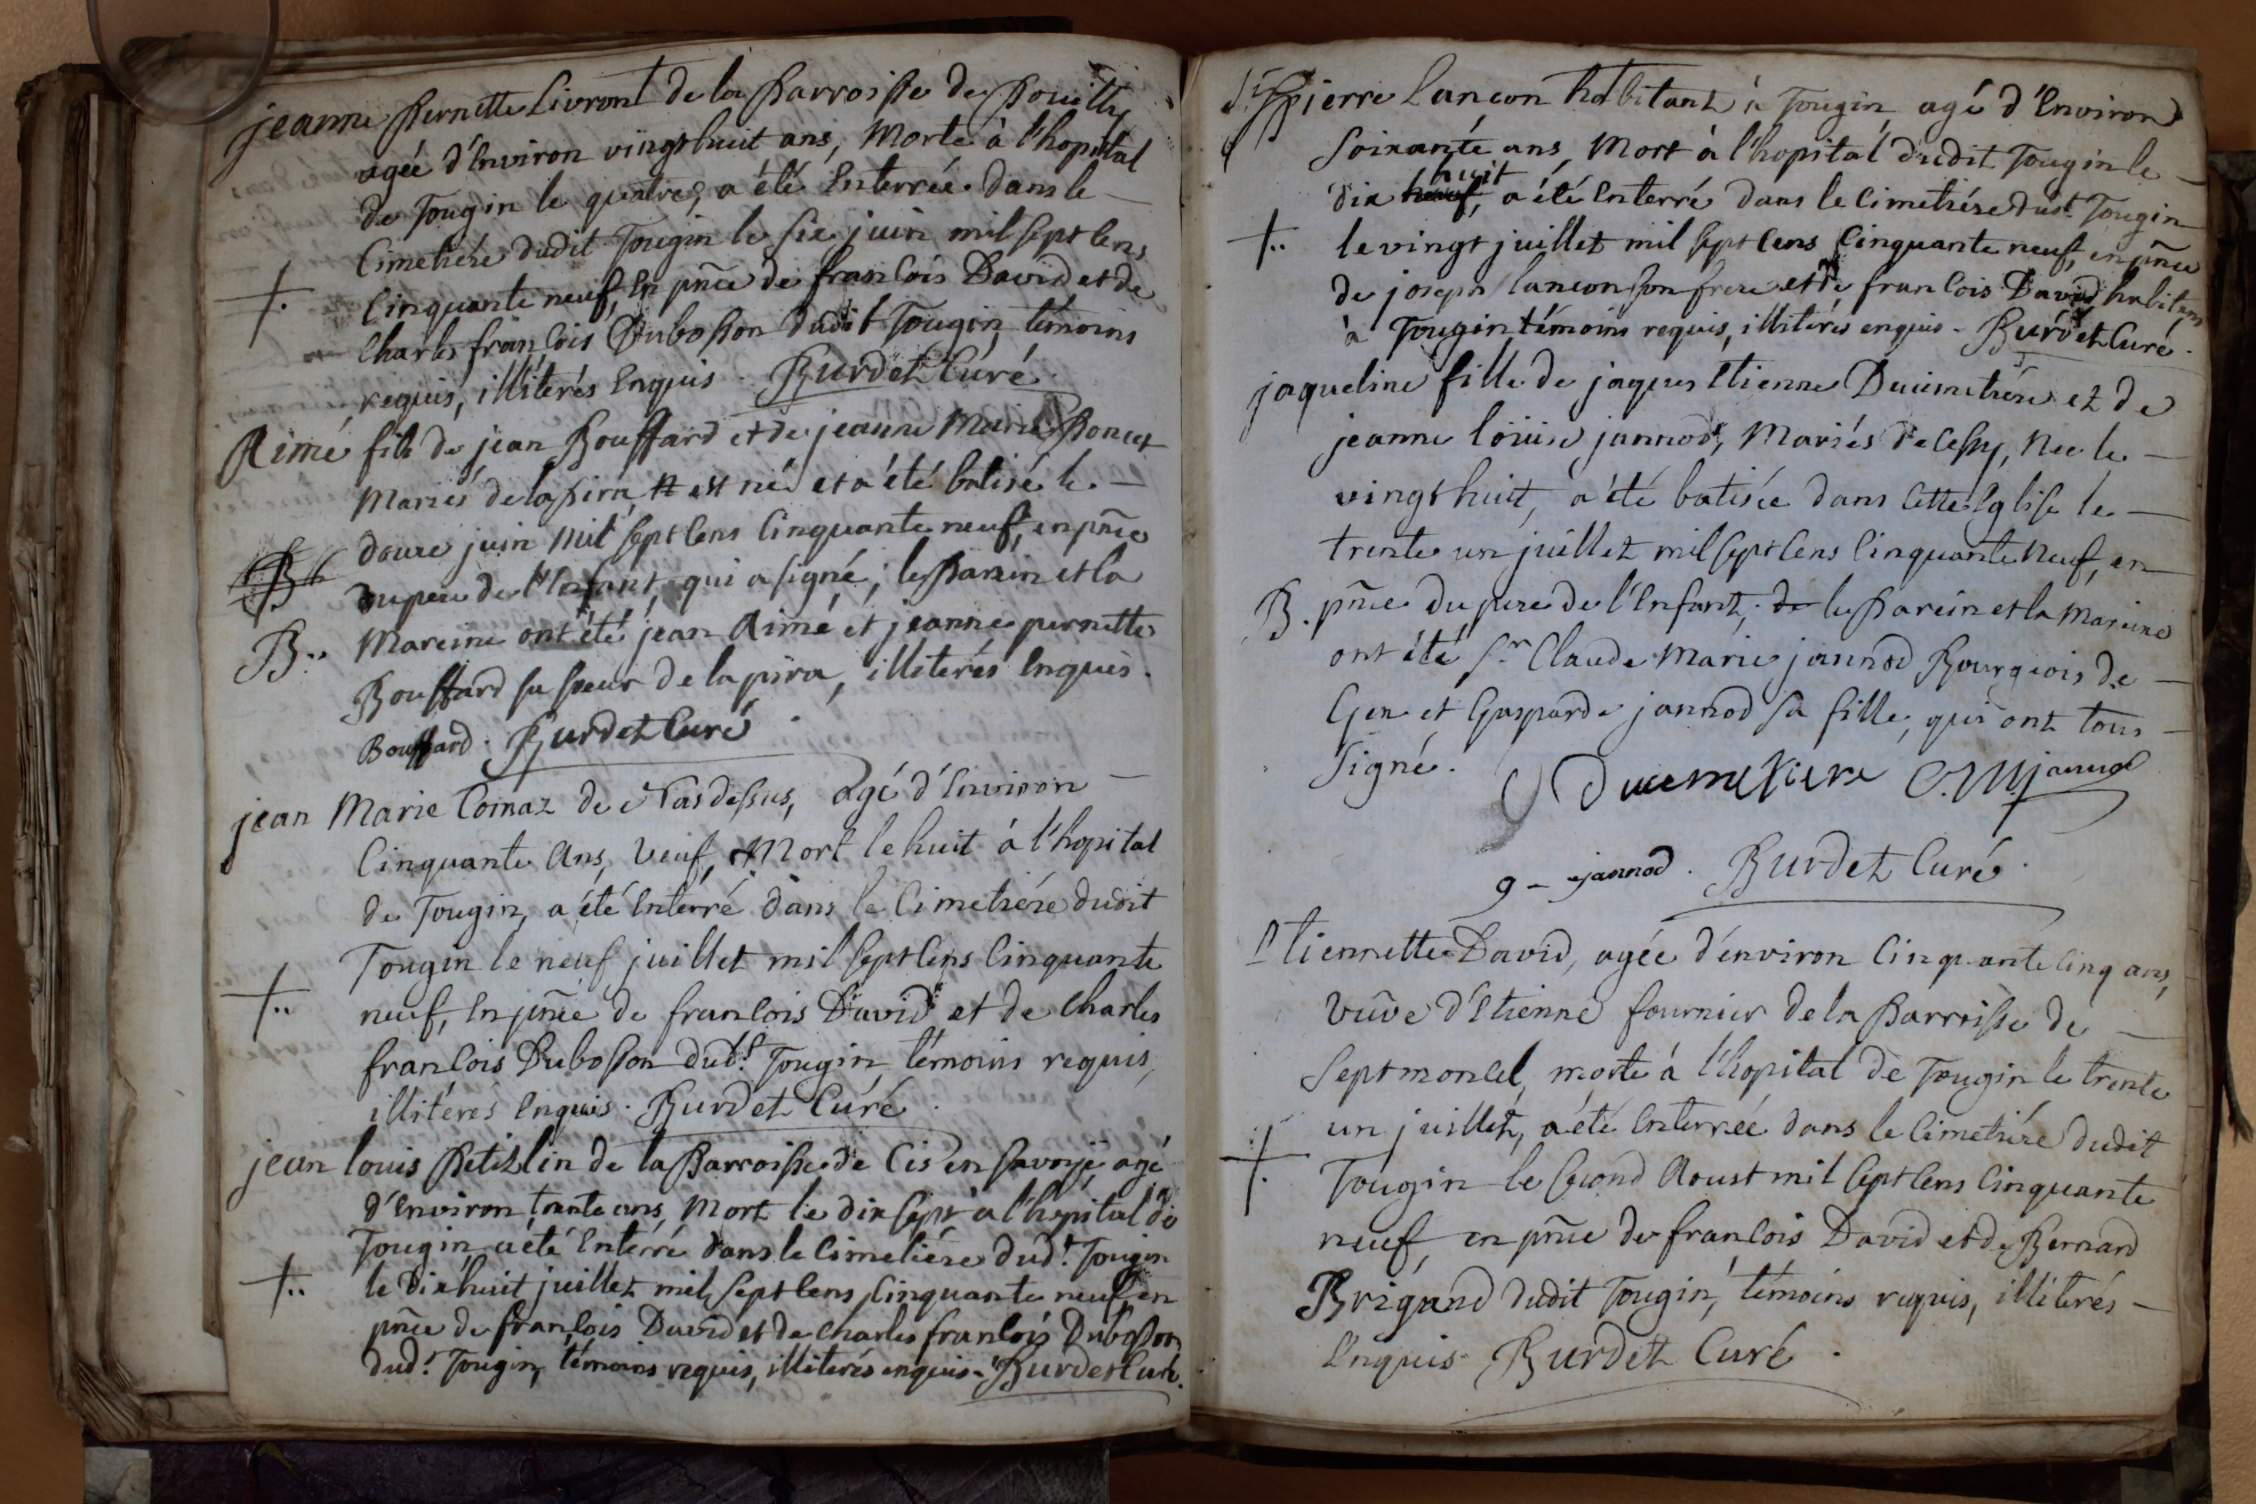 jeanne Pernette Livront de la Parroisse de Pouilly
agée d'Environ vingthuit ans, Morte à l'hopital
de Tougin le quatre, a été Enterrée dans le
Cimetiére dudit Tougin le six juin mil sept Cens
+. Cinquante neuf, En pñce de francois David et de
Charles francois Dubosson dudit Tougin, témoins
requis, illiterés Enquis. Burdet Curé.
Aimé fils de jean Bouffard et de jeanne Marie Poncet
Mariés de la pira, est né et a été batisé le
douze juin mil sept Cens Cinquante neuf, en pñce
du pere de l'Enfant, qui a signé; le Parein et la
B.. Mareine ont été jean Aimé et jeanne pernette
Bouffard sa soeur de la pira, illiterés Enquis.
Bouffard. Burdet Curé
jean Marie Coinaz de Nasdessus, agé d'Environ
Cinquante Ans, Veuf, Mort le huit à l'hopital
de Tougin, a été Enterré dans le Cimetiére dudit
Tougin le neuf juillet mil sept Cens Cinquante
+.. neuf, En pñce de francois David et de Charles
francois Dubosson dudt. Tougin, témoins requis,
illiterés Enquis. Burdet Curé.
jean louis Petitzlin de la Parroisse de Cis en Savoye, agé
d'Environ trente ans, Mort le dix sept à l'hopital de
Tougin, a été Enterré dans le Cimetiére dudt. Tougin
+.. le dixhuit juillet mil sept Cens Cinquante neuf en
pñce de francois David et de Charles francois Dubosson
dudt. Tougin, témoins requis, illiterés enquis. Burdet Curé.
Pierre Lancon habitant à Tougin, agé d'Environ
Soixante ans, Mort à l'hopital dudit Tougin le
huit
dix neuf, a été Enterré dans le Cimetiére dudt. Tougin
+.. le vingt juillet mil sept Cens Cinquante neuf, en pñce
de joseph lancon son frere et de francois David habitens
à Tougin, témoins requis, illiterés enquis. Burdet Curé.
jaqueline fille de jaques Etienne Ducimetiére et de
jeanne loüise jannod, Mariés de Cessy, Nee le
vingt huit, a été batisée dans Cette Eglise le
trente un juillet mil sept Cens Cinquante Neuf, en
B. pñce du pere de l'Enfant; de le Parein et la Mareine
ont été Sr. Claude Marie jannod Bourgeois de
Gex et Gasparde jannod sa fille, qui ont tous
Signé.
Ducimetiere C. M. jannod
g - jannod. Burdet Curé.
Etiennette David, agée d'environ Cinquante Cinq ans,
Vuve d'Etienne fournier de la Parroisse de
Septmoncel, morte à l'hopital de Tougin le trente
un juillet, a été Enterrée dans le Cimetiére dudit
+. Tougin le second Aoust mil sept Cens Cinquante
neuf, en pñce de francois David et de Bernard
Brigand dudit Tougin, témoins requis, illiterés
Enquis. Burdet Curé.